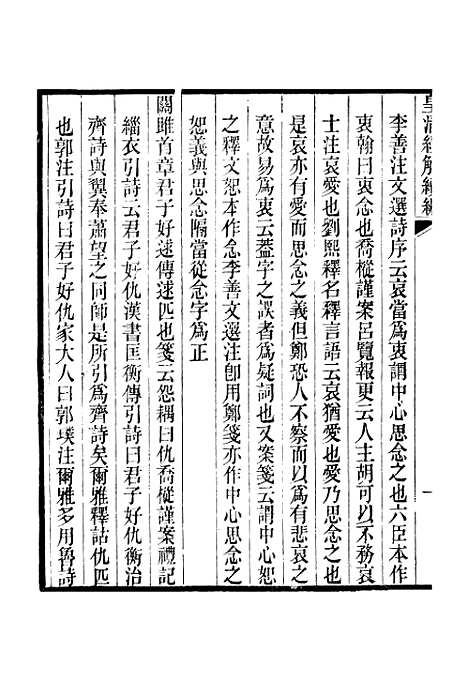 皇清經解續編
一
李善注文選詩序云哀當爲衷謂中心思念之也六臣本作
衷翰曰衷念也喬樅謹案呂覽報更云人主胡可以不務哀
士注哀愛也劉熙釋名釋言語云哀猶愛也愛乃思念之也
是哀亦有愛而思念之義但鄭恐人不察而以爲有悲哀之
意故易爲衷云葢字之誤者爲疑詞也又案箋云謂中心恕
之釋文恕本作念李善文選注卽用鄭箋亦作中心思念之
恕義與思念隔當從念字爲正
關雎首章君子好逑傳逑匹也箋云怨耦曰仇喬樅謹案禮記
緇衣引詩云君子好仇漢書匡衡傳引詩曰君子好仇衡治
齊詩與翼奉蕭望之同師是所引爲齊詩矣爾雅釋詁仇匹
也郭注引詩曰君子好仇家大人曰郭璞注爾雅多用魯詩